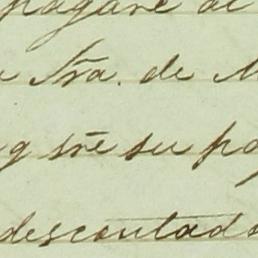 pagaré al
Sra. de M
g sre su pag
descontado